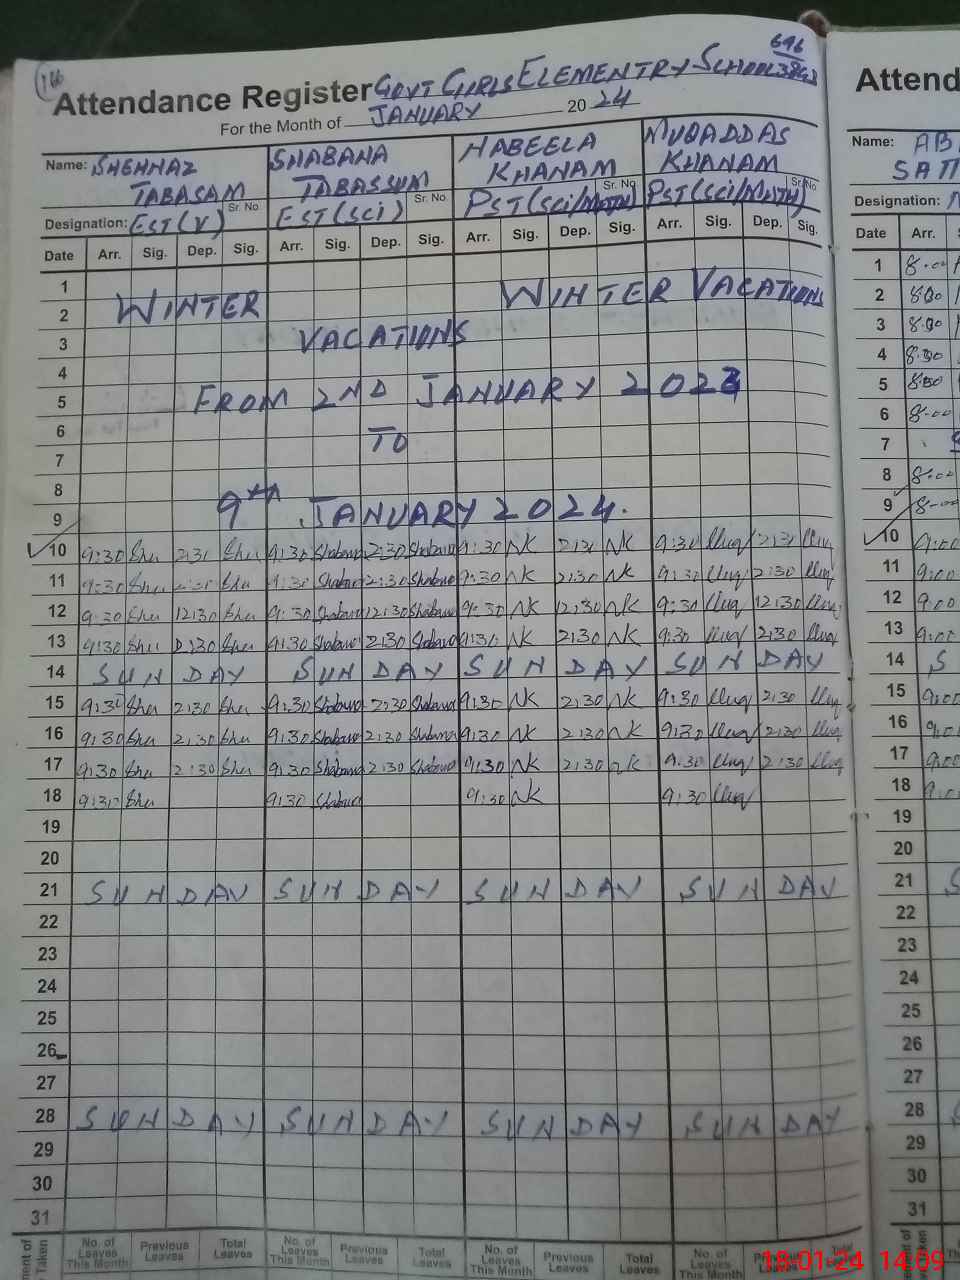 166
696
38943
Attendance Register GOVT GIRLS ELEMENTRY SCHOOL
For the Month of JANUARY 20 24
Name: SHEHNAZ TABASAM SHABANA TABASSUM HABEELA KHANAM MUQADDAS KHANAM
Sr. No. Sr. No. Sr. No. Sr. No.
Designation: EST(V) EST(SCI) PST(SCI/MATH) PST(SCI/MATH)
Date Arr. Sig. Dep. Sig. Arr. Sig. Dep. Sig. Arr. Sig. Dep. Sig. Arr. Sig. Dep. Sig.
1
2 WINTER WINTER VACATIONS
3 VACATIONS
4
5 FROM 2ND JANUARY 2023
6 TO
7
8
9 9TH JANUARY 2024.
10 9:30 Sha 2:31 Sha 9:30 Shabana 2:30 Shabana 9:30 NK 2:30 NK 9:30 2:30
11 9:30 Sha 2:30 Sha 9:30 Shabana 2:30 Shabana 9:30 NK 2:30 NK 9:30 2:30
12 9:30 Sha 12:30 Sha 9:30 Shabana 12:30 Shabana 9:30 NK 12:30 NK 9:30 12:30
13 9:30 Sha 2:30 Sha 9:30 Shabana 2:30 Shabana 9:30 NK 2:30 NK 9:30 2:30
14 SUNDAY SUNDAY SUNDAY SUNDAY
15 9:30 Sha 2:30 Sha 9:30 Shabana 2:30 Shabana 9:30 NK 2:30 NK 9:30 2:30
16 9:30 Sha 2:30 Sha 9:30 Shabana 2:30 Shabana 9:30 NK 2:30 NK 9:30 2:30
17 9:30 Sha 2:30 Sha 9:30 Shabana 2:30 Shabana 9:30 NK 2:30 NK 9:30 2:30
18 9:30 Sha 9:30 Shabana 9:30 NK 9:30
19
20
21 SUNDAY SUNDAY SUNDAY SUNDAY
22
23
24
25
26
27
28 SUNDAY SUNDAY SUNDAY SUNDAY
29
30
31
No. of Leaves This Month Previous Leaves Total Leaves No. of Leaves This Month Previous Leaves Total Leaves No. of Leaves This Month Previous Leaves Total Leaves No. of Leaves This Month Previous Total
Taken
Attend
Name: AB
Designation:
Date Arr.
1 8:00
2 8:00
3 8:00
4 8:00
5 8:00
6 8:00
7 S
8 8:00
9 8:00
10 9:00
11 9:00
12 9:00
13 9:00
14 S
15 9:00
16 9:00
17 9:00
18 9:0
19
20
21 S
22
23
24
25
26
27
28
29
30
31
No. of Leaves
Taken
18-01-24 14:09